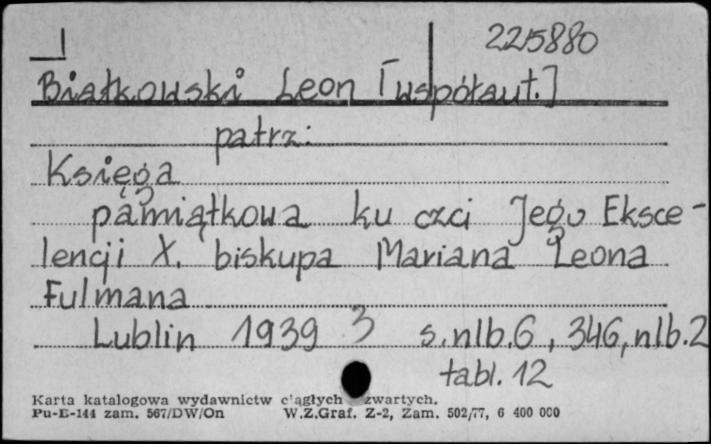 225880
Białkowski Leon [współaut.]
patrz:
Księga
pamiątkowa ku czci Jego Eksce-
lencji X. biskupa Mariana Leona
Fulmana
Lublin 1939 3 s.nlb.6, 346, nlb.2
tabl. 12
Karta katalogowa wydawnictw ciągłych zwartych.
Pu-E-144 zam. 567/DW/On W.Z.Graf. Z-2, Zam. 502/77, 6 400 000